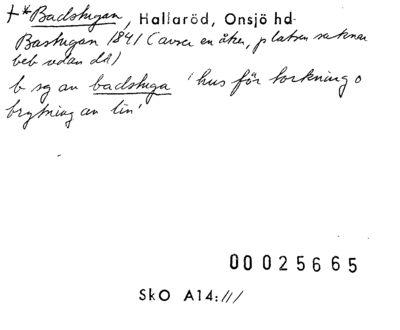 †*Badstugan, Hallaröd, Onsjö hd.
Bastugan 1841 (avser en åker, platsen saknar
beb redan då)
b sg av badstuga 'hus för torkning o
brytning av lin'
00025665
SkO A14:///